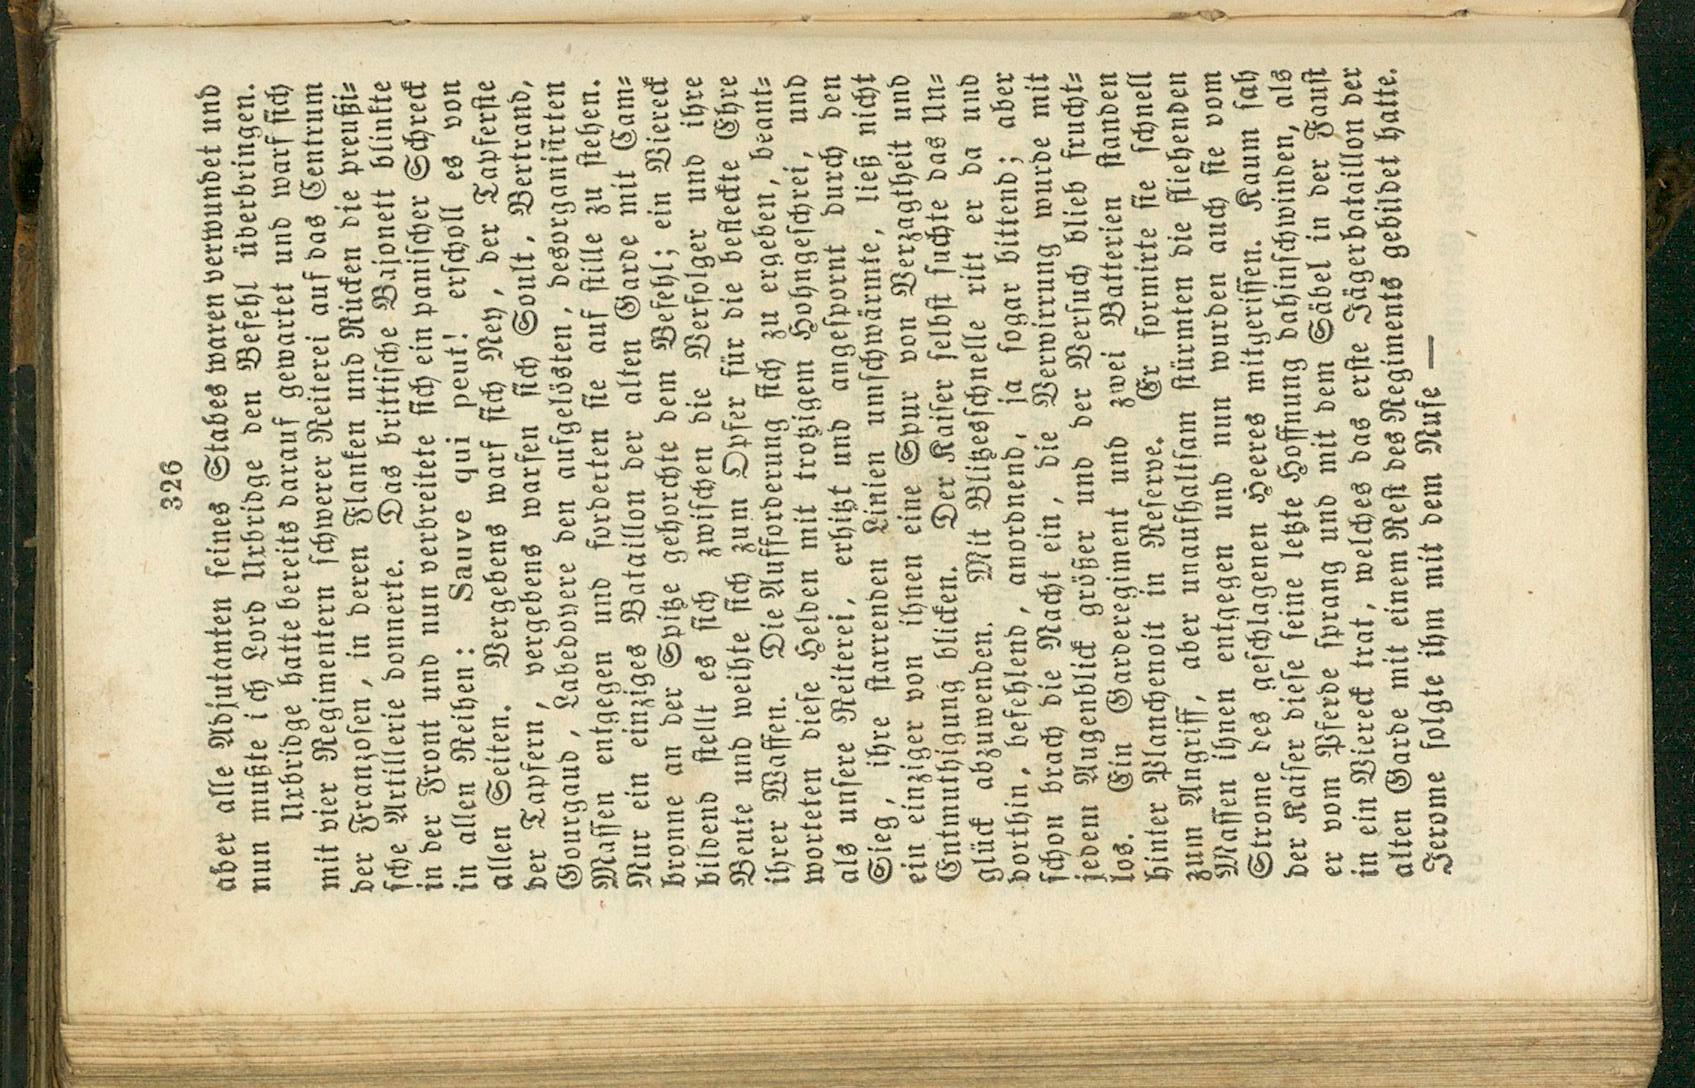 326
aber alle Adjutanten seines Stabes waren verwundet und
nun mußte ich Lord Uxbridge den Befehl überbringen.
Uxbridge hatte bereits darauf gewartet und warf sich
mit vier Regimentern schwerer Reiterei auf das Centrum
der Franzosen, in deren Flanken und Rücken die preußi-
sche Artillerie donnerte. Das brittische Bajonett blinkte
in der Front und nun verbreitete sich ein panischer Schreck
in allen Reihen: Sauve qui peut! erscholl es von
allen Seiten. Vergebens warf sich Ney, der Tapferste
der Tapfern, vergebens warfen sich Soult, Bertrand,
Gourgaud, Labedoyere den aufgelösten, desorganisirten
Massen entgegen und forderten sie auf stille zu stehen.
Nur ein einziges Bataillon der alten Garde mit Cam-
bronne an der Spitze gehorchte dem Befehl; ein Viereck
bildend stellt es sich zwischen die Verfolger und ihre
Beute und weihte sich zum Opfer für die befleckte Ehre
ihrer Waffen. Die Aufforderung sich zu ergeben, beant-
worteten diese Helden mit trotzigem Hohngeschrei, und
als unsere Reiterei, erhitzt und angespornt durch den
Sieg, ihre starrenden Linien umschwärmte, ließ nicht
ein einziger von ihnen eine Spur von Verzagtheit und
Entmuthigung blicken. Der Kaiser selbst suchte das Un-
glück abzuwenden. Mit Blitzesschnelle ritt er da und
dorthin, befehlend, anordnend, ja sogar bittend; aber
schon brach die Nacht ein, die Verwirrung wurde mit
jedem Augenblick größer und der Versuch blieb frucht-
los. Ein Garderegiment und zwei Batterien standen
hinter Planchenoit in Reserve. Er formirte sie schnell
zum Angriff, aber unaufhaltsam stürmten die fliehenden
Massen ihnen entgegen und nun wurden auch sie vom
Strome des geschlagenen Heeres mitgerissen. Kaum sah
der Kaiser diese seine letzte Hoffnung dahinschwinden, als
er vom Pferde sprang und mit dem Säbel in der Faust
in ein Viereck trat, welches das erste Jägerbataillon der
alten Garde mit einem Rest des Regiments gebildet hatte.
Jerome folgte ihm mit dem Rufe —